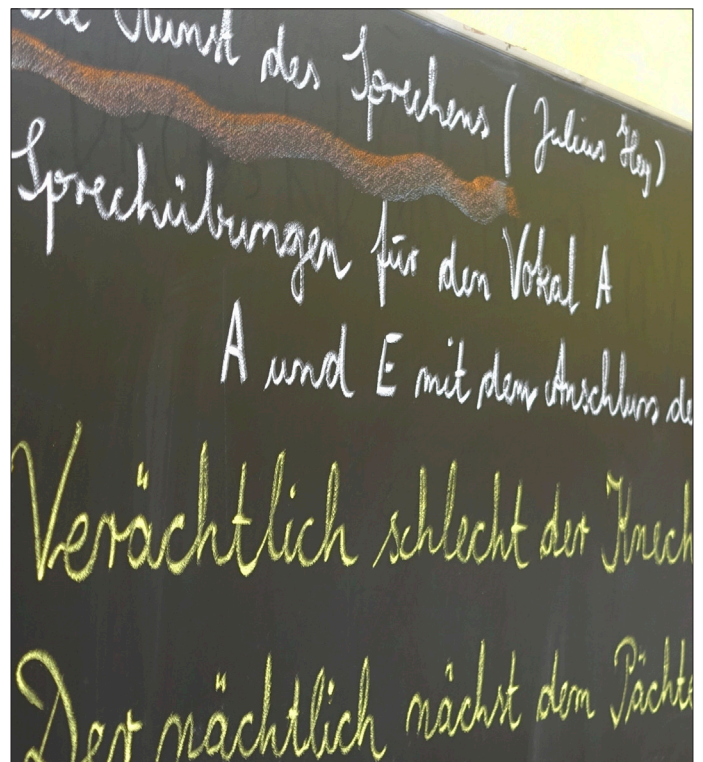 Die Kunst des Sprechens (Julius Hey)
Sprechübungen für den Vokal A
A und E mit dem Anschluss de
Verächtlich schlecht der Knech
Der nächtlich nächst dem Pächte